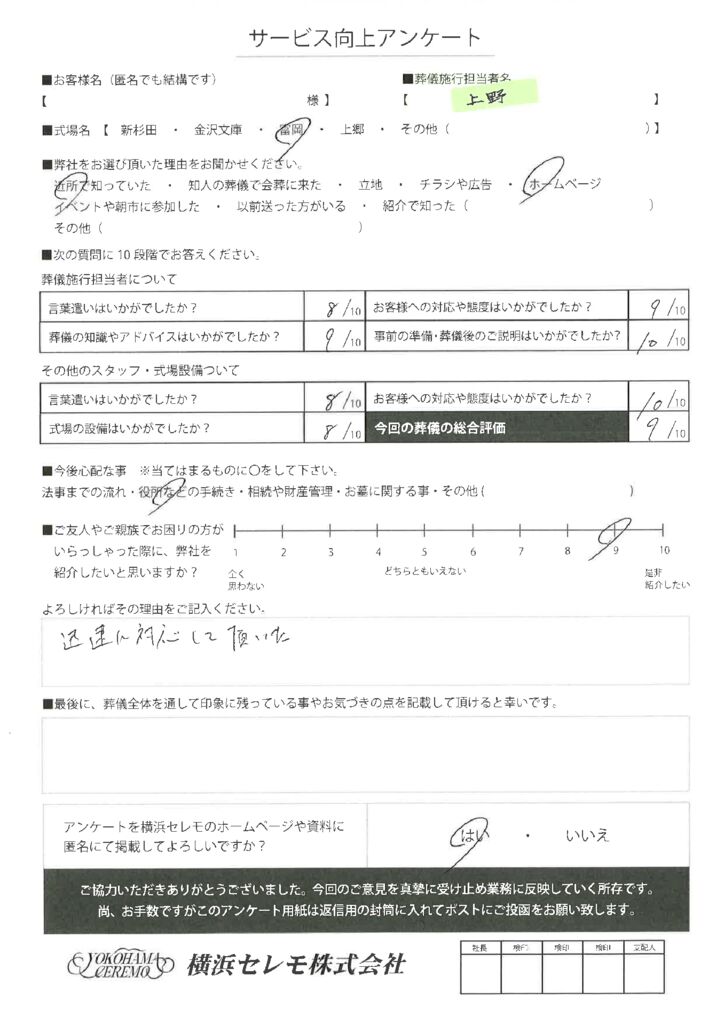 サービス向上アンケート
■お客様名（匿名でも結構です）
【 様 】
■葬儀施行担当者名
【 上野 】
■式場名 【 新杉田 ・ 金沢文庫 ・ 富岡 ・ 上郷 ・ その他（ ）】
■弊社をお選び頂いた理由をお聞かせください。
近所で知っていた ・ 知人の葬儀で会葬に来た ・ 立地 ・ チラシや広告 ・ ホームページ
イベントや朝市に参加した ・ 以前送った方がいる ・ 紹介で知った（ ）
その他（ ）
■次の質問に10段階でお答えください。
葬儀施行担当者について
言葉遣いはいかがでしたか？ 8/10 お客様への対応や態度はいかがでしたか？ 9/10
葬儀の知識やアドバイスはいかがでしたか？ 9/10 事前の準備・葬儀後のご説明はいかがでしたか？ 10/10
その他のスタッフ・式場設備ついて
言葉遣いはいかがでしたか？ 8/10 お客様への対応や態度はいかがでしたか？ 10/10
式場の設備はいかがでしたか？ 8/10 今回の葬儀の総合評価 9/10
■今後心配な事 ※当てはまるものに〇をして下さい。
法事までの流れ・役所などの手続き・相続や財産管理・お墓に関する事・その他（ ）
■ご友人やご親族でお困りの方が
いらっしゃった際に、弊社を
紹介したいと思いますか？
1 2 3 4 5 6 7 8 9 10
全く
思わない
どちらともいえない
是非
紹介したい
よろしければその理由をご記入ください。
迅速に対応して頂いた
■最後に、葬儀全体を通して印象に残っている事やお気づきの点を記載して頂けると幸いです。
アンケートを横浜セレモのホームページや資料に
匿名にて掲載してよろしいですか？
はい ・ いいえ
ご協力いただきありがとうございました。今回のご意見を真摯に受け止め業務に反映していく所存です。
尚、お手数ですがこのアンケート用紙は返信用の封筒に入れてポストにご投函をお願い致します。
YOKOHAMA
CEREMO
横浜セレモ株式会社
社長 検印 検印 検印 支配人